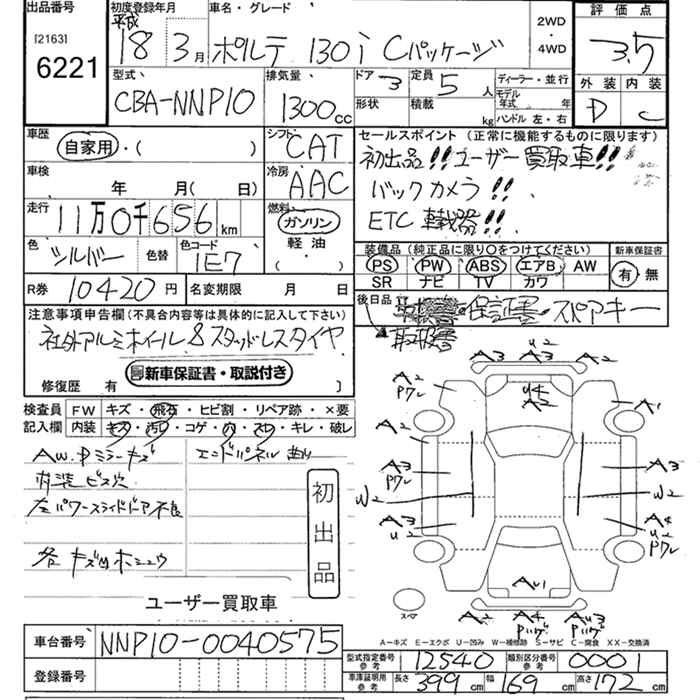 出品番号 初度登録年月 車名・グレード 評価点
[2163] 平成 2WD
6221 18 3月 ポルテ 130i Cパッケージ ・4WD 3.5
型式 排気量 ドア 3 定員 5人 ディーラー・並行 外装 内装
CBA-NNP10 1300cc 形状 積載 kg モデル年式 年 D C
ハンドル 左・右
車歴 シフト CAT セールスポイント (正常に機能するものに限ります)
自家用・( ) 初出品!! ユーザー買取車!!
車検 冷房 AAC バックカメラ!!
年 月( 日) ETC 車載器!!
走行 11万0千656km 燃料 ガソリン
軽油・
( )
色 シルバー 色替 色コード 1E7 装備品 (純正品に限り○をつけてください) 新車保証書
PS PW ABS エアB AW 有・無
SR ナビ TV カワ
R券 10420円 名変期限 月 日 後日品 保証書 スペアキー
取扱書
注意事項申告欄(不具合内容等は具体的に記入して下さい)
社外アルミホイール & スタッドレスタイヤ
新車保証書・取説付き
修復歴 有( )
検査員記入欄 FW キズ・飛石・ヒビ割・リペア跡・×要
内装 キズ・汚れ・コゲ・穴・スレ・キレ・破レ
AW.ドミラーキズ エンドパネル曲り
内装ビス穴
左パワースライドドア不良
各キズ凹ホシュウ
初出品
ユーザー買取車
A2 A3 u2 A3 A2
Pワレ u4 A2 A1
A2
A3 Pワレ A3 Pワレ
W2 W2
A3 u2 A4 u2 Pワレ
AU1
スペア A2 A4 AU3
A-キズ E-エクボ U-凹み W-補修跡 S-サビ C-腐食 XX-交換済
車台番号 NNP10-0040575
登録番号
型式指定番号 参考 12540 類別区分番号 参考 0001
車庫証明用 参考 長さ 399cm 幅 169cm 高さ 172cm